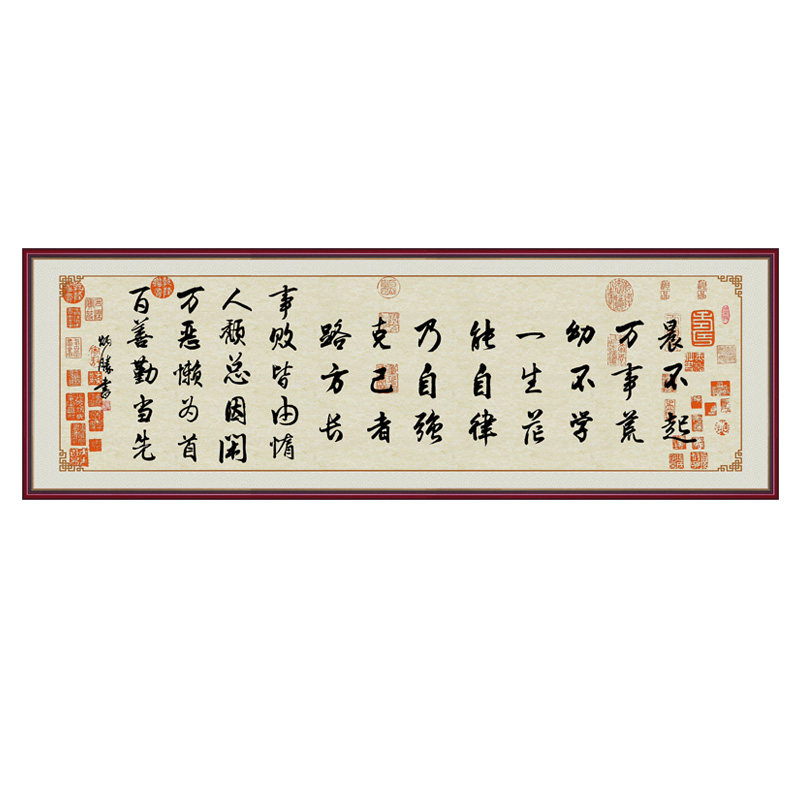 晨不起
万事荒
幼不学
一生茫
能自律
乃自强
克己者
路方长
事败皆由惰
人颓总因闲
万恶懒为首
百善勤当先
炳胜书